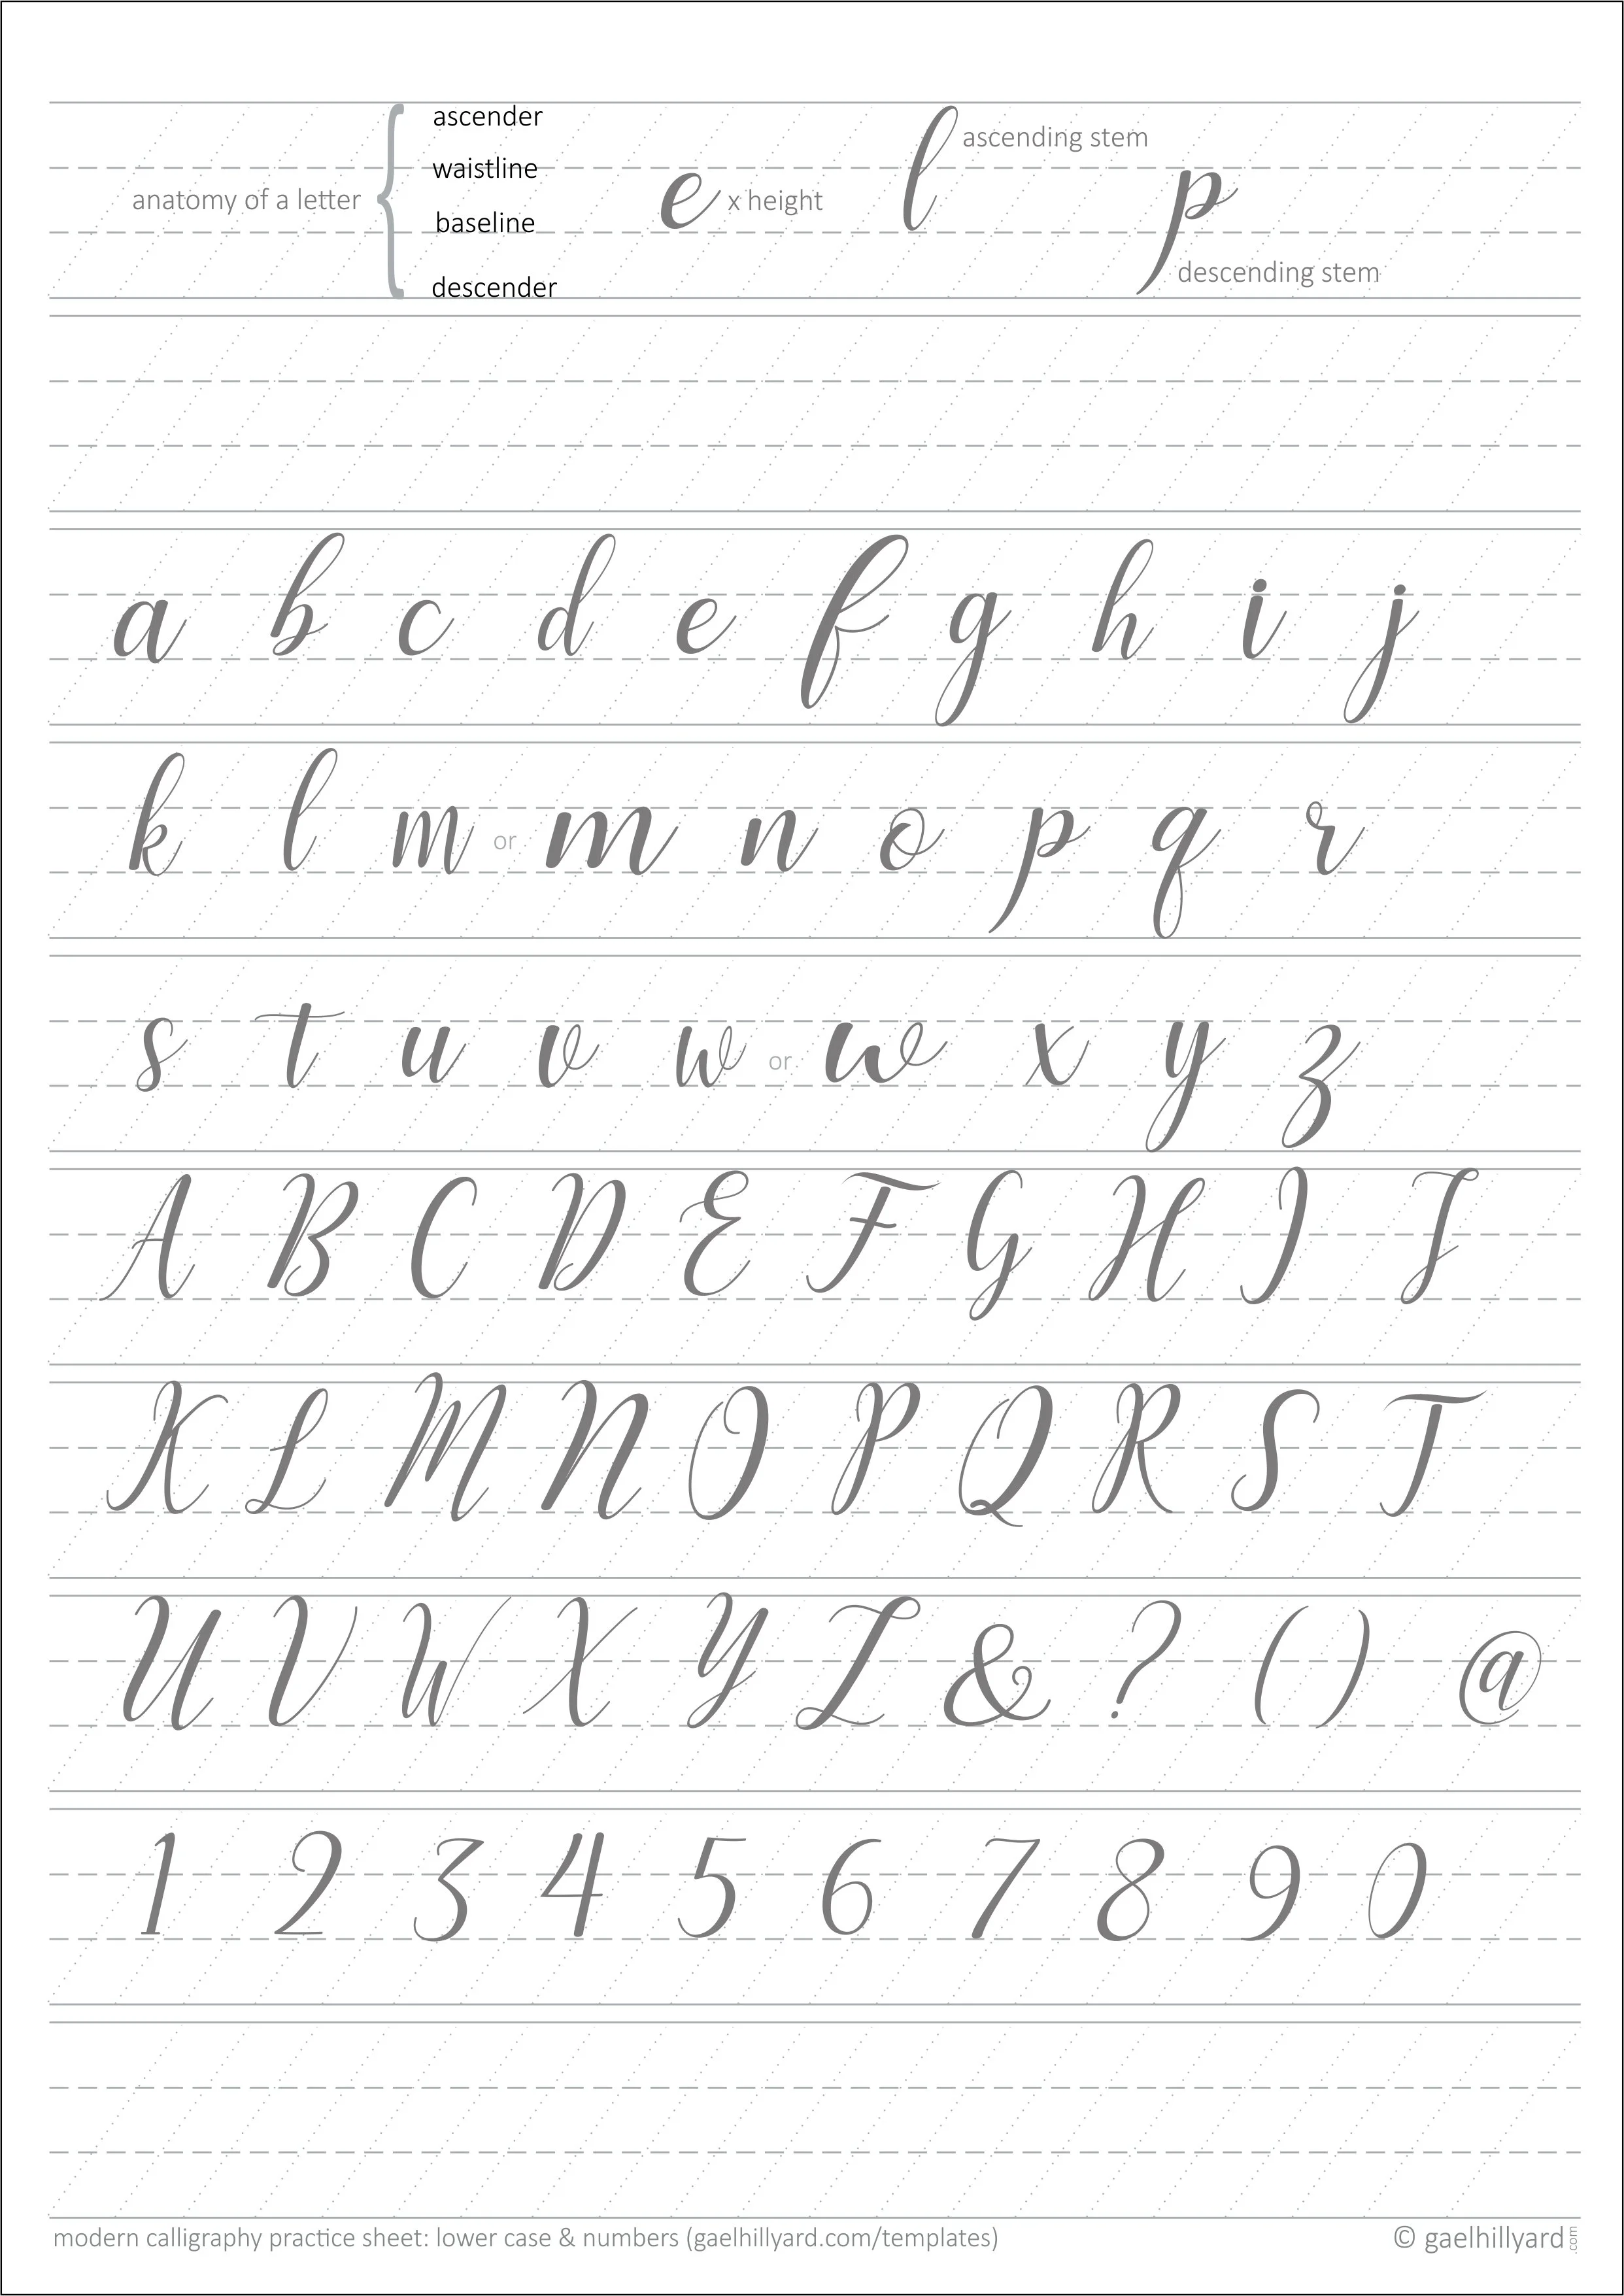 ascender
waistline
anatomy of a letter { baseline
descender
e x height
l ascending stem
p descending stem
a b c d e f g h i j
k l m or m n o p q r
s t u v w or w x y z
A B C D E F G H I J
K L M N O P Q R S T
U V W X Y Z & ? ( ) @
1 2 3 4 5 6 7 8 9 0
modern calligraphy practice sheet: lower case & numbers (gaelhillyard.com/templates) © gaelhillyard.com